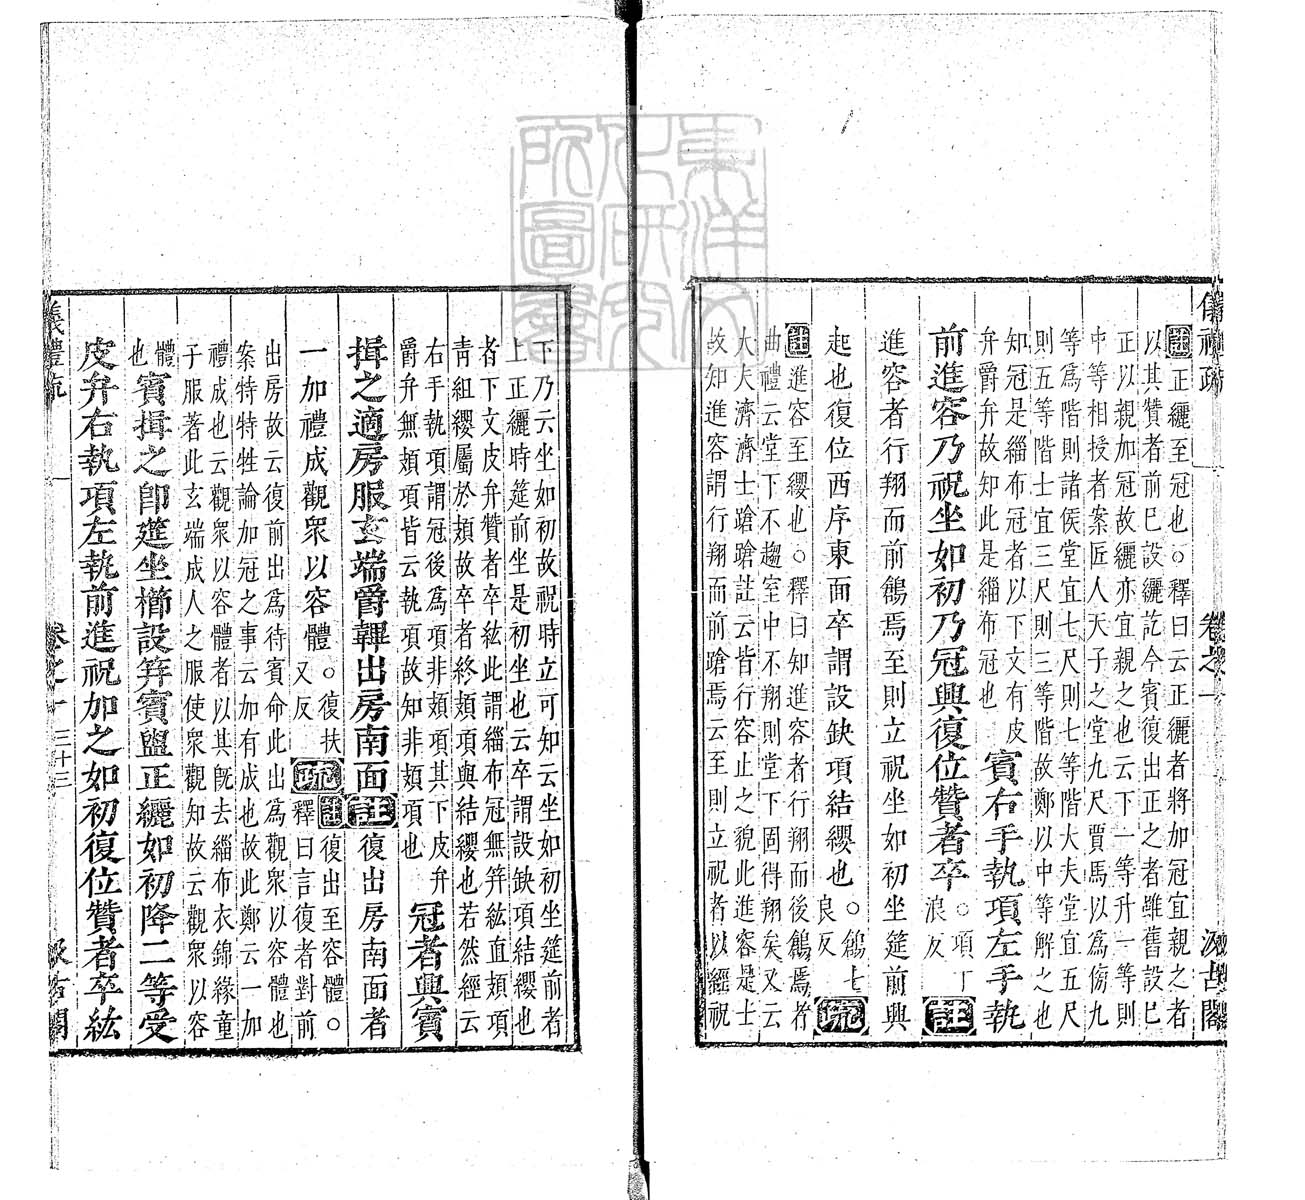 儀禮疏 卷之一 汲古閣
註正纚至冠也○釋曰云正纚者將加冠宜親之者
以其贊者前已設纚訖今賓復出正之者雖舊設已
正以親加冠故纚亦宜親之也云下一等升一等則
中等相授者案匠人天子之堂九尺賈馬以爲傍九
等爲階則諸侯堂宜七尺則七等階大夫堂宜五尺
則五等階士宜三尺則三等階故鄭以中等解之也
知冠是緇布冠者以下文有皮
弁爵弁故知此是緇布冠也
賓右手執項左手執
前進容乃祝坐如初乃冠興復位贊者卒
○項丁
浪反
註
進容者行翔而前鶬焉至則立祝坐如初坐筵前興
起也復位西序東面卒謂設缺項結纓也
○鶬七
良反
疏
註進容至纓也○釋曰知進容者行翔而後鶬焉者
曲禮云堂下不趨室中不翔則堂下固得翔矣又云
大夫濟濟士蹌蹌註云皆行容止之貌此進容是士
故知進容謂行翔而前蹌焉云至則立祝者以經祝
下乃云坐如初故祝時立可知云坐如初坐筵前者
上正纚時筵前坐是初坐也云卒謂設缺項結纓也
者下文皮弁贊者卒紘此謂緇布冠無笄紘直頍項
靑組纓屬於頍故卒者終頍項與結纓也若然經云
右手執項謂冠後爲項非頍項其下皮弁
爵弁無頍項皆云執項故知非頍項也
冠者興賓
揖之適房服玄端爵韠出房南面
註
復出房南面者
一加禮成觀衆以容體
○復扶
又反
疏
註復出至容體○
釋曰言復者對前
出房故云復前出爲待賓命此出爲觀衆以容體也
案特特牲論加冠之事云加有成也故此鄭云一加
禮成也云觀衆以容體者以其旣去緇布衣錦緣童
子服著此玄端成人之服使衆觀知故云觀衆以容
體
也
賓揖之卽筵坐櫛設笄賓盥正纚如初降二等受
皮弁右執項左執前進祝加之如初復位贊者卒紘
儀禮疏 卷之一 三十三 汲古閣
東洋文化研究所圖書